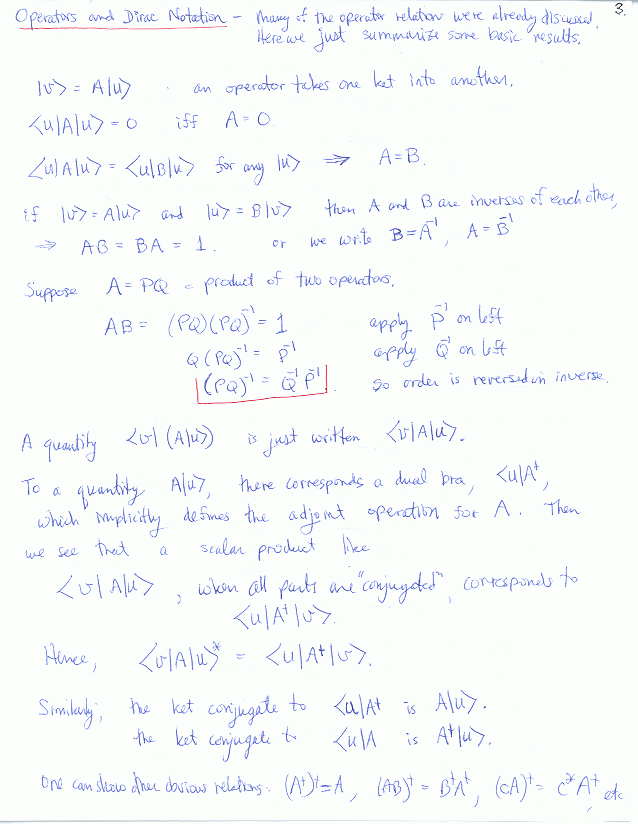 Operators and Dirac Notation – Many of the operator relation were already discussed. 3.
Here we just summarize some basic results.
|v> = A|u> . an operator takes one ket into another.
<u|A|u> = 0 iff A = 0.
<u|A|u> = <u|B|u> for any |u> ⇒ A=B.
if |v> = A|u> and |u> = B|v> then A and B are inverses of each other,
⇒ AB = BA = 1. or we write B = A⁻¹, A = B⁻¹
Suppose A = PQ = product of two operators.
AB = (PQ)(PQ)⁻¹ = 1 apply P⁻¹ on left
Q(PQ)⁻¹ = P⁻¹ apply Q⁻¹ on left
(PQ)⁻¹ = Q⁻¹P⁻¹ . so order is reversed in inverse.
A quantity <v|(A|u>) is just written <v|A|u>.
To a quantity A|u>, there corresponds a dual bra, <u|A†,
which implicitly defines the adjoint operation for A. Then
we see that a scalar product like
<v|A|u>, when all parts are "conjugated", corresponds to
<u|A†|v>.
Hence, <v|A|u>* = <u|A†|v>.
Similarly, the ket conjugate to <u|A† is A|u>.
the ket conjugate to <u|A is A†|u>.
One can show other obvious relations: (A†)†=A, (AB)† = B†A†, (cA)† = c*A†, etc